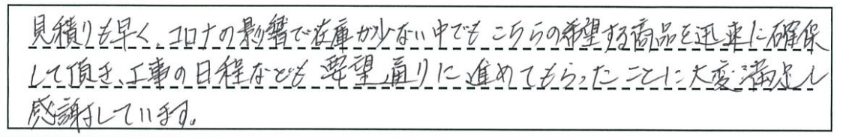 見積りも早く、コロナの影響で在庫が少ない中でもこちらの希望する商品を迅速に確保
して頂き、工事の日程なども要望通りに進めてもらったことに大変満足し
感謝しています。